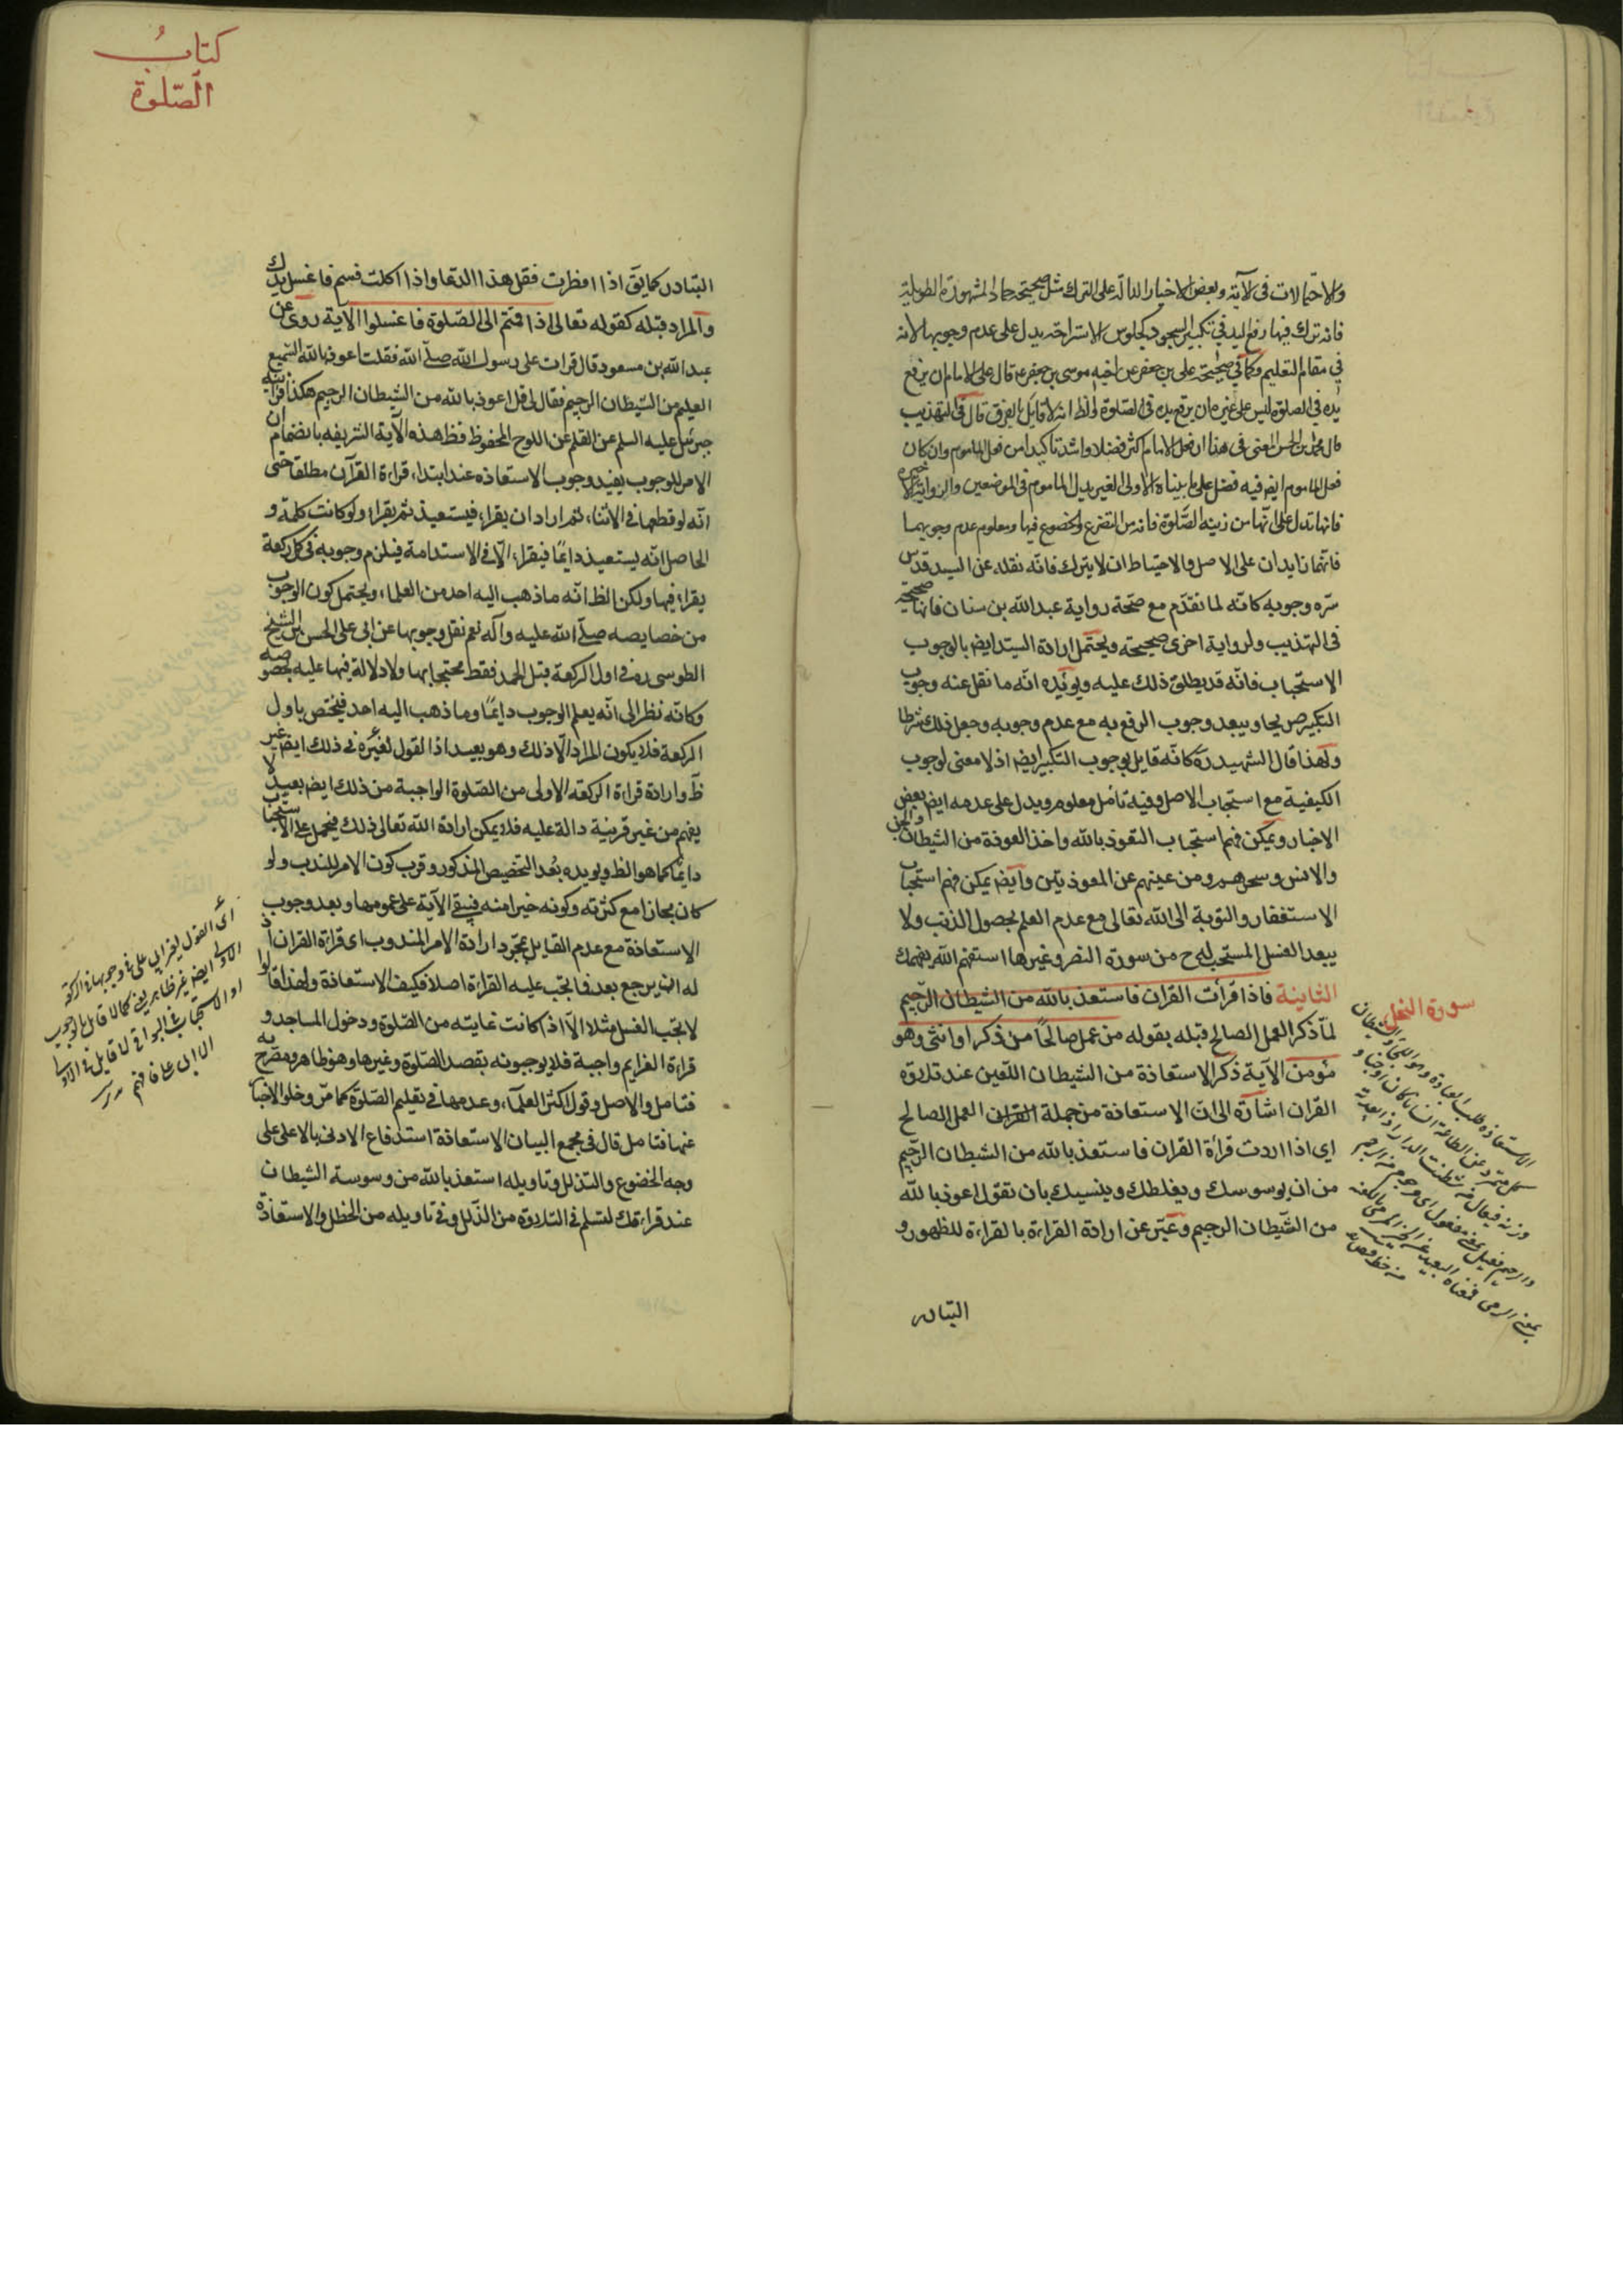 والاحتمالات فى الآية وبعض الاخبار الدالة على الترك مثل صحيحة حماد المشهورة الطويلة
فانه ترك فيها رفع اليد فى تكبير السجود كجلوس الاستراحة يدل على عدم وجوبها لانه
فى مقام التعليم وكما فى صحيحة على بن جعفر عن اخيه موسى بن جعفر ع قال على الامام ان يرفع
يده فى الصلوة ليس على غيره ان يرفع يده فى الصلوة والظ انه لا قايل بالفرق قال فى التهذيب
قال محمد بن الحسن المعنى فى هذا ان فعل الامام اكثر فضلا واشد تاكيدا من فعل الماموم وان كان
فعل الماموم ايض فيه فضل على ما بيناه الاولى الغير بدل الماموم فى الموضعين والرواية الاخيرة
فانها تدل على انها من زينة الصلوة فانه من التضرع والخضوع فيها ومعلوم عدم وجوبهما
فانهما زايدان على الاصل والاحتياط ان لا يترك فانه نقله عن السيد قدس
سره وجوبه كانه لما تقدم مع صحة رواية عبد الله بن سنان فانها صحيحة
فى التهذيب ولرواية اخرى صحيحة ويحتمل ارادة السيد ايض بالوجوب
الاستحباب فانه قد يطلق ذلك عليه ويويده انه ما نقل عنه وجوب
التكبير صريحا ويبعد وجوب الرفع به مع عدم وجوبه وجعل ذلك شرطا
ولهذا قال الشهيد ره كانه قايل بوجوب التكبير ايض اذ لا معنى لوجوب
الكيفية مع استحباب الاصل وفيه تامل معلوم ويدل على عدمه ايض بعض
الاخبار ويمكن فهم استحباب التعوذ بالله واخذ العوذة من الشيطان والجن
والانس وسحرهم ومن عينهم عن المعوذتين وايض يمكن فهم استحباب
الاستغفار والتوبة الى الله تعالى مع عدم العلم بحصول الذنب ولا
يبعد الغسل المستحب لها ح من سورة النصر وغيرها استفهم الله يفهمك
الثانية فاذا قرأت القران فاستعذ بالله من الشيطان الرجيم
لما ذكر العمل الصالح قبله بقوله من عمل صالحا من ذكر او انثى وهو
مؤمن الآية ذكر الاستعاذة من الشيطان اللعين عند تلاوة
القران اشارة الى ان الاستعاذة من جملة القران العمل الصالح
اى اذا اردت قرأة القران فاستعذ بالله من الشيطان الرجيم
من ان يوسوسك ويغلطك وينسيك بان تقول اعوذ بالله
من الشيطان الرجيم وعبر عن ارادة القراءة بالقراءة للظهور و
التبادر
سورة النحل
الاستعاذة طلب العاذة وهو اللجأ والشيطان
كل متمرد عن الطاعة انسانا كان او جنا و
وزنه فيعال من شطنت الدار اذا بعدت
والرجيم فعيل بمعنى مفعول اى مرجوم من الرجم
بمعنى الرمى فمعناه البعيد عن الخير المرمى باللعنة
كتاب
الصلوة
التبادر كما يق اذا افطرت فقل هذا الدعا واذا اكلت فسم فاغسل يدك
والمراد قبله كقوله تعالى اذا قمتم الى الصلوة فاغسلوا الآية روى عن
عبد الله بن مسعود قال قرات على رسول الله صلى الله فقلت اعوذ بالله السميع
العليم من الشيطان الرجيم فقال لى قل اعوذ بالله من الشيطان الرجيم هكذا اقرانيه
جبرئيل عليه السلم عن القلم عن اللوح المحفوظ فظ هذه الآية الشريفة بانضمام ان
الامر للوجوب يفيد وجوب الاستعاذه عند ابتداء قراءة القرآن مطلقا حتى
انه لو قطعها فى الاثناء ثم اراد ان يقراء فيستعيذ ثم يقراء ولو كانت كلمة و
الحاصل انه يستعيذ دايما فيقراء الا فى الاستدامة فيلزم وجوبه فى كل ركعة
يقراء فيها ولكن الظ انه ما ذهب اليه احد من العلماء ويحتمل كون الوجوب
من خصايصه صلى الله عليه وآله نعم نقل وجوبها عن ابى على الحسن بن الشيخ
الطوسى ره فى اول الركعة قبل الحمد فقط محتجا بها ولا دلالة فيها عليه بخصوصه
وكانه نظر الى انه يعلم الوجوب دايما وما ذهب اليه احد فيختص باول
الركعة فلا يكون المراد الا ذلك وهو بعيد اذ القول لغيره فى ذلك ايض غير
ظ وارادة قراءة الركعة الاولى من الصلوة الواجبة من ذلك ايض بعيد لا
يفهم من غير قرينة دالة عليه فلا يمكن ارادة الله تعالى ذلك فيحمل على الاستحباب
دايما كما هو الظ ويويده بعد التخصيص المذكور وقرب كون الامر للندب ولو
كان مجازا مع كثرته وكونه خيرا منه فيبقى الآية على عمومها وبعد وجوب
الاستعاذة مع عدم القايل بمجرد ارادة الامر المندوب اى قراءة القران اذ
له ان يرجع بعد فما تجب عليه القراءة اصلا فكيف الاستعاذة ولهذا قالوا
لا تجب الغسل مثلا الا اذا كانت غايته من الصلوة ودخول المساجد و
قراءة العزايم واجبة فلا يوجبونه بقصد الصلوة وغيرها وهو ظاهر ومصرح به
فتامل والاصل وقول اكثر العلماء وعدمها فى تعليم الصلوة كما مر وخلو الاخبار
عنها فتامل قال فى مجمع البيان الاستعاذة استدفاع الادنى بالاعلى على
وجه الخضوع والتذلل وتاويله استعذ بالله من وسوسة الشيطان
عند قراءتك لتسلم فى التلاوة من الذلل وفى تاويله من الخطل والاستعاذة
اى القول لغير ابى على فى وجوبها فى الركعة
الاولى ايض غير ظاهر يعنى كما لا قايل بالوجوب
او الاستحباب فى البواقى لا قايل فى الاولى
الا ابى على فافهم